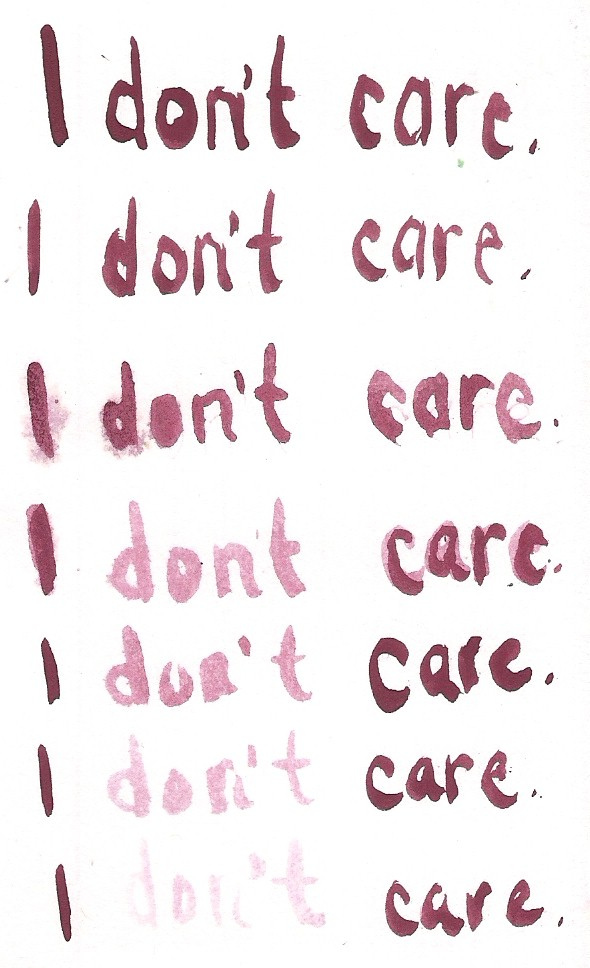 I don't care.
I don't care.
I don't care.
I don't care.
I don't care.
I don't care.
I don't care.